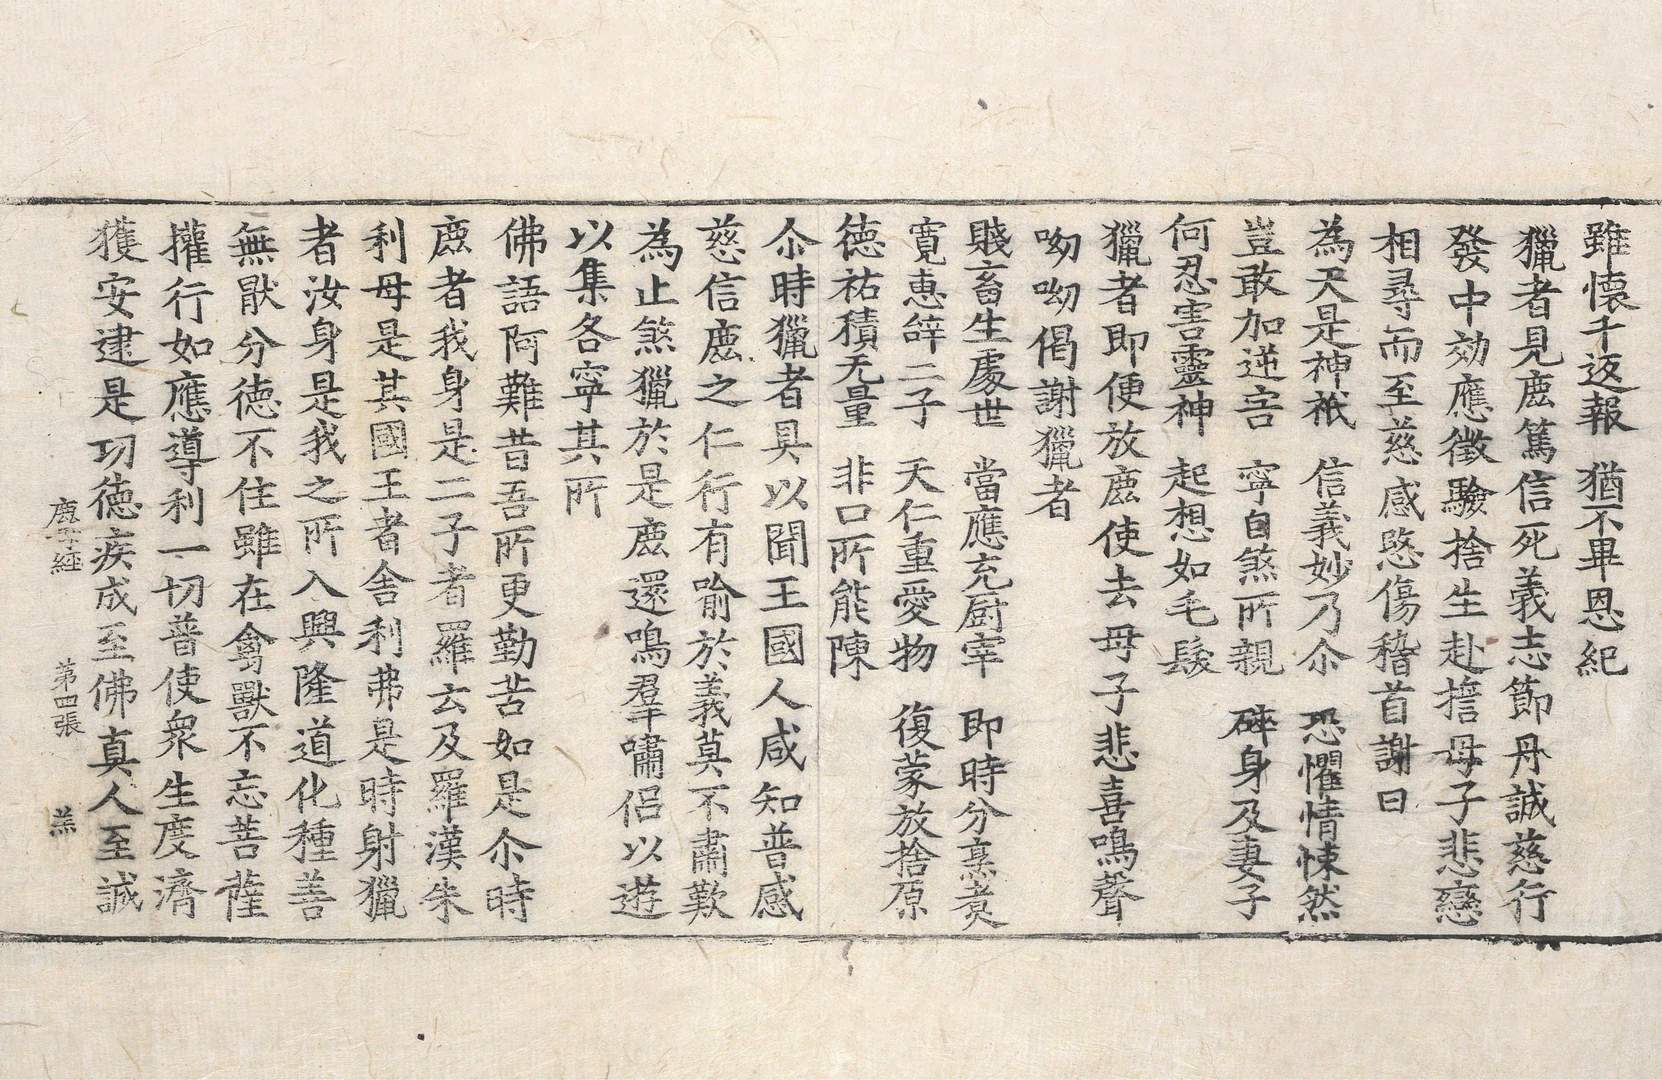 雖懷千返報　猶不畢恩紀
獵者見鹿篤信死義志節丹誠慈行
發中効應徵驗捨生赴誓母子悲戀
相尋而至慈感愍傷稽首謝曰
為天是神祇　信義妙乃尒　恐懼情悚然
豈敢加逆害　寧自煞所親　碎身及妻子
何忍害靈神　起想如毛髮
獵者即便放鹿使去母子悲喜鳴聲
呦呦偈謝獵者
賤畜生處世　當應充厨宰　即時分烹煑
寬惠辝二子　天仁重愛物　復蒙放捨原
德祐積无量　非口所能陳
尒時獵者具以聞王國人咸知普感
慈信鹿之仁行有喻於義莫不肅歎
為止煞獵於是鹿還鳴羣嘯侶以遊
以集各寧其所
佛語阿難昔吾所更勤苦如是尒時
鹿者我身是二子者羅云及羅漢朱
利母是其國王者舍利弗是時射獵
者汝身是我之所入興隆道化種善
無猒分德不住雖在禽獸不忘菩薩
攉行如應導利一切普使衆生度濟
獲安逮是功德疾成至佛真人至誠
鹿母経　第四張　羔